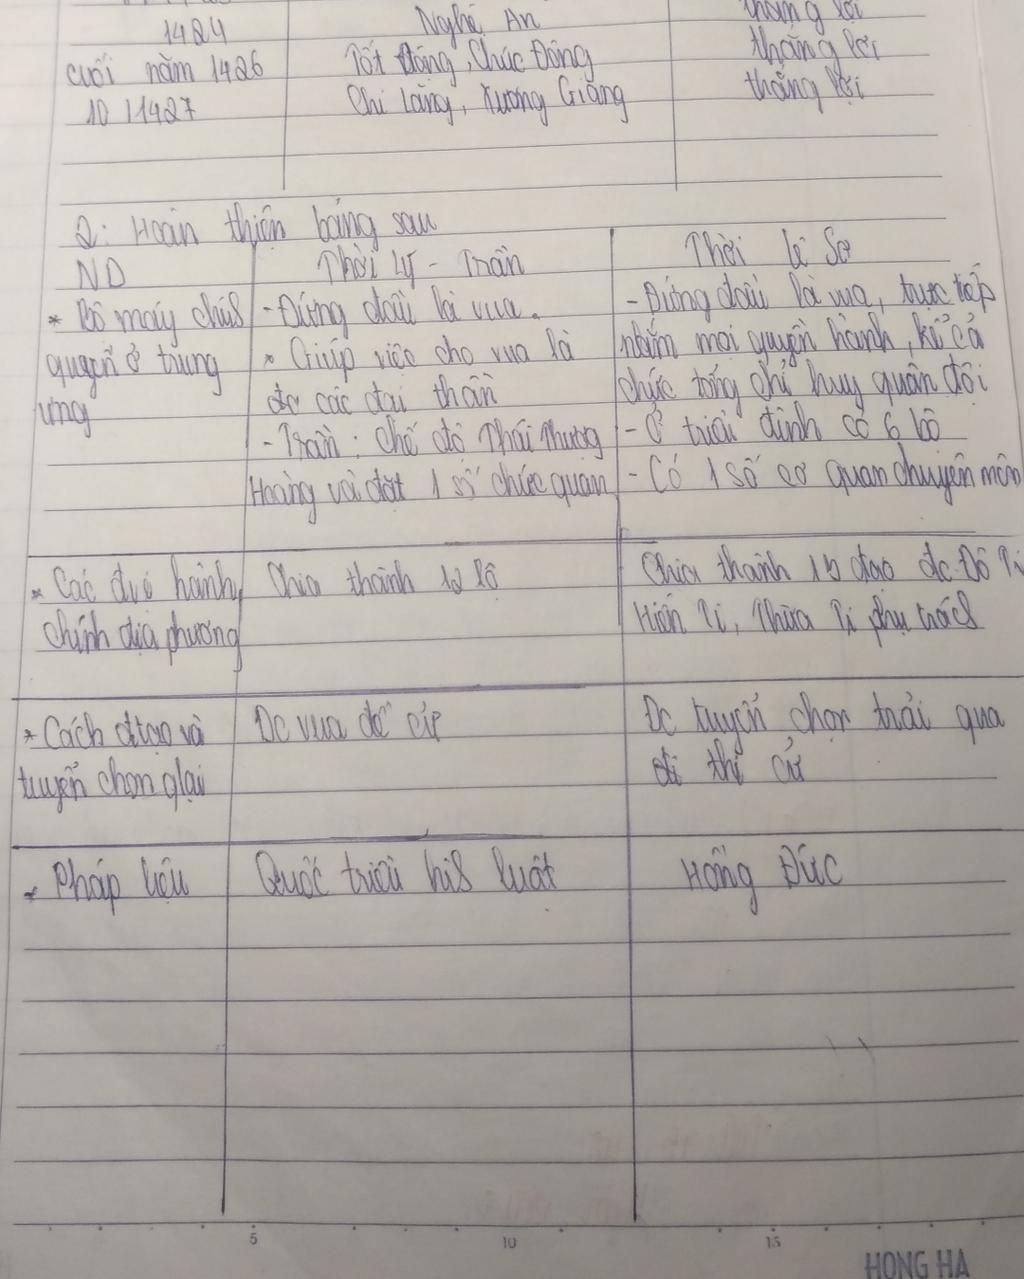 1424 Nghệ An thắng lợi
cuối năm 1426 Tốt Động, Chúc Động thắng lợi
10/1427 Chi Lăng, Xương Giang thắng lợi
2: Hoàn thiện bảng sau
ND Thời Lý - Trần Thời Lê Sơ
* Bộ máy chính - Đứng đầu là vua. - Đứng đầu là vua, trực tiếp
quyền ở trung * Giúp việc cho vua là nắm mọi quyền hành, kể cả
ương đc các đại thần chức tổng chỉ huy quân đội
- Trần: Chế độ Thái Thượng - Ở triều đình có 6 bộ
Hoàng và đặt 1 số chức quan - Có 1 số cơ quan chuyên môn
* Các đvị hành Chia thành 12 lộ Chia thành 13 đạo đc Đô Ti
chính địa phương Hiến Ti, Thừa Ti phụ trách
* Cách đtạo và Dc vua đề cử Dc tuyển chọn trải qua
tuyển chọn qlại thi cử
* Pháp luật Quốc triều hình luật Hồng Đức
5 10 15
HONG HA